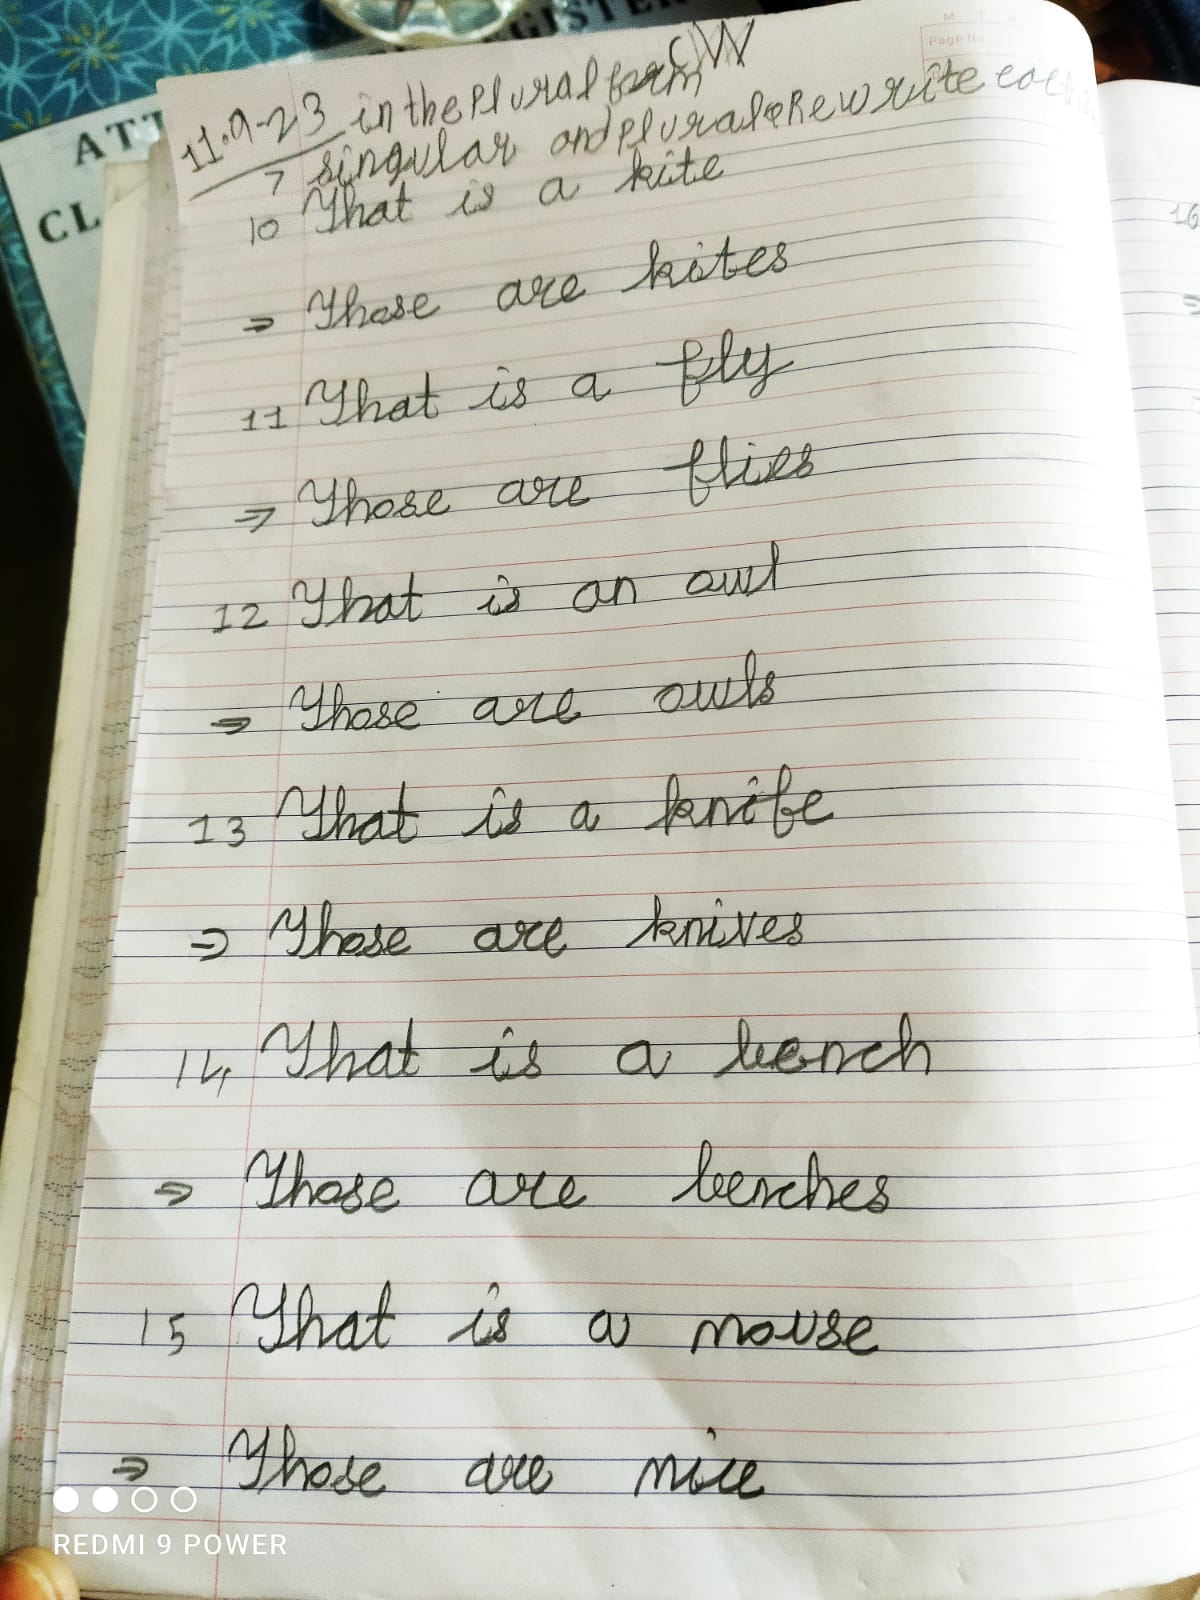 GISTER
M T
Page No.
ATT
CL
CW
11.9-23 in the Plural form
7 singular and plural Rewrite
10 That is a kite
⇒ Those are kites
11 That is a fly
⇒ Those are flies
12 That is an owl
⇒ Those are owls
13 That is a knife
⇒ Those are knives
14 That is a bench
⇒ Those are benches
15 That is a mouse
⇒ Those are mice
16
REDMI 9 POWER